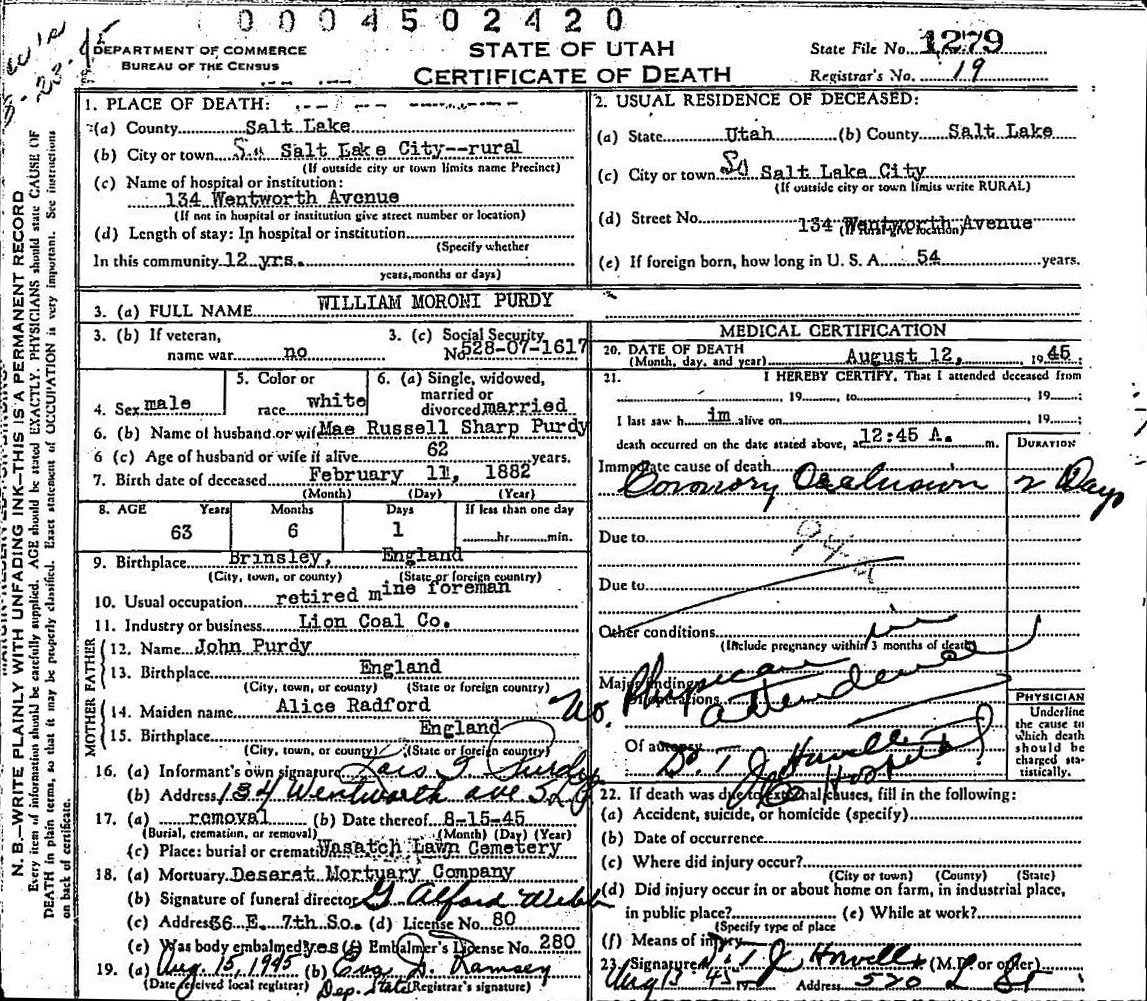 0004502420
DEPARTMENT OF COMMERCE
BUREAU OF THE CENSUS
STATE OF UTAH
CERTIFICATE OF DEATH
State File No. 1279
Registrar's No. 19
N. B.—WRITE PLAINLY WITH UNFADING INK—THIS IS A PERMANENT RECORD
Every item of information should be carefully supplied. AGE should be stated EXACTLY. PHYSICIANS should state CAUSE OF
DEATH in plain terms, so that it may be properly classified. Exact statement of OCCUPATION is very important. See instructions
on back of certificate.
1. PLACE OF DEATH:
(a) County Salt Lake
(b) City or town So Salt Lake City--rural
(If outside city or town limits name Precinct)
(c) Name of hospital or institution:
134 Wentworth Avenue
(If not in hospital or institution give street number or location)
(d) Length of stay: In hospital or institution
(Specify whether
In this community 12 yrs.
years, months or days)
2. USUAL RESIDENCE OF DECEASED:
(a) State Utah (b) County Salt Lake
(c) City or town So Salt Lake City
(If outside city or town limits write RURAL)
(d) Street No. 134 Wentworth Avenue
(If rural give location)
(e) If foreign born, how long in U. S. A. 54 years.
3. (a) FULL NAME WILLIAM MORONI PURDY
3. (b) If veteran, 3. (c) Social Security
name war no No. 528-07-1617
4. Sex male
5. Color or
race white
6. (a) Single, widowed,
married or
divorced married
6. (b) Name of husband or wife Mae Russell Sharp Purdy
6 (c) Age of husband or wife if alive 62 years.
7. Birth date of deceased February 11, 1882
(Month) (Day) (Year)
8. AGE Years Months Days If less than one day
63 6 1 hr. min.
9. Birthplace Brinsley, England
(City, town, or county) (State or foreign country)
10. Usual occupation retired mine foreman
11. Industry or business Lion Coal Co.
FATHER
12. Name John Purdy
13. Birthplace England
(City, town, or county) (State or foreign country)
MOTHER
14. Maiden name Alice Radford
15. Birthplace England
(City, town, or county) (State or foreign country)
16. (a) Informant's own signature Lois G Purdy
(b) Address 134 Wentworth ave S L C
17. (a) removal (b) Date thereof 8-15-45
(Burial, cremation, or removal) (Month) (Day) (Year)
(c) Place: burial or cremation Wasatch Lawn Cemetery
18. (a) Mortuary Deseret Mortuary Company
(b) Signature of funeral director G Alford Webb
(c) Address 36 E. 7th So. (d) License No. 80
(e) Was body embalmed yes (f) Embalmer's License No. 280
19. (a) Aug. 15, 1945 (b) Eva D. Ramsey
(Date received local registrar) Dep. State (Registrar's signature)
MEDICAL CERTIFICATION
20. DATE OF DEATH
(Month, day, and year) August 12, 1945
21. I HEREBY CERTIFY, That I attended deceased from
, 19 , to , 19 :
I last saw h im alive on , 19 ;
death occurred on the date stated above, at 12:45 A. m.
DURATION
Immediate cause of death
Coronory Occlusion 2 Days
Due to
Due to
Other conditions
(Include pregnancy within 3 months of death)
Major findings:
Of operations
No Physician in
attendence
Of autopsy
Dr. T J Howells
PHYSICIAN
Underline
the cause to
which death
should be
charged sta-
tistically.
22. If death was due to external causes, fill in the following:
(a) Accident, suicide, or homicide (specify)
(b) Date of occurrence
(c) Where did injury occur?
(City or town) (County) (State)
(d) Did injury occur in or about home on farm, in industrial place,
in public place? (e) While at work?
(Specify type of place
(f) Means of injury
23. Signature T J Howells (M.D. or other)
Aug 13 45 Address 520 L St